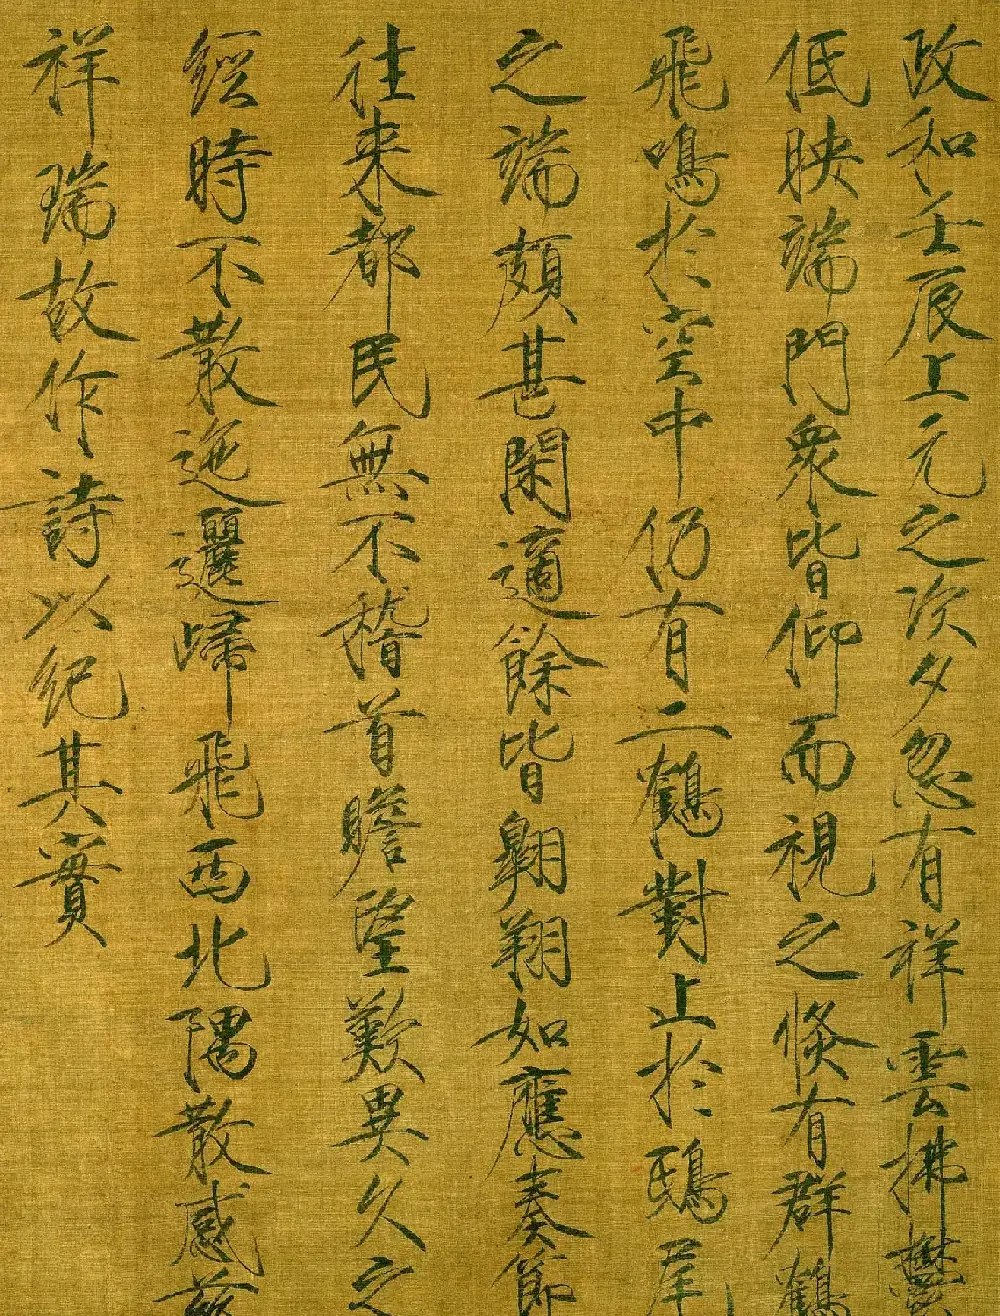 政和壬辰上元之次夕忽有祥雲拂鬱
低映端門衆皆仰而視之倐有群鶴
飛鳴於空中仍有二鶴對止於鴟尾
之端頗甚閑適餘皆翺翔如應奏節
往来都民無不稽首瞻望歎異久之
經時不散迤邐歸飛西北隅散感兹
祥瑞故作詩以紀其實